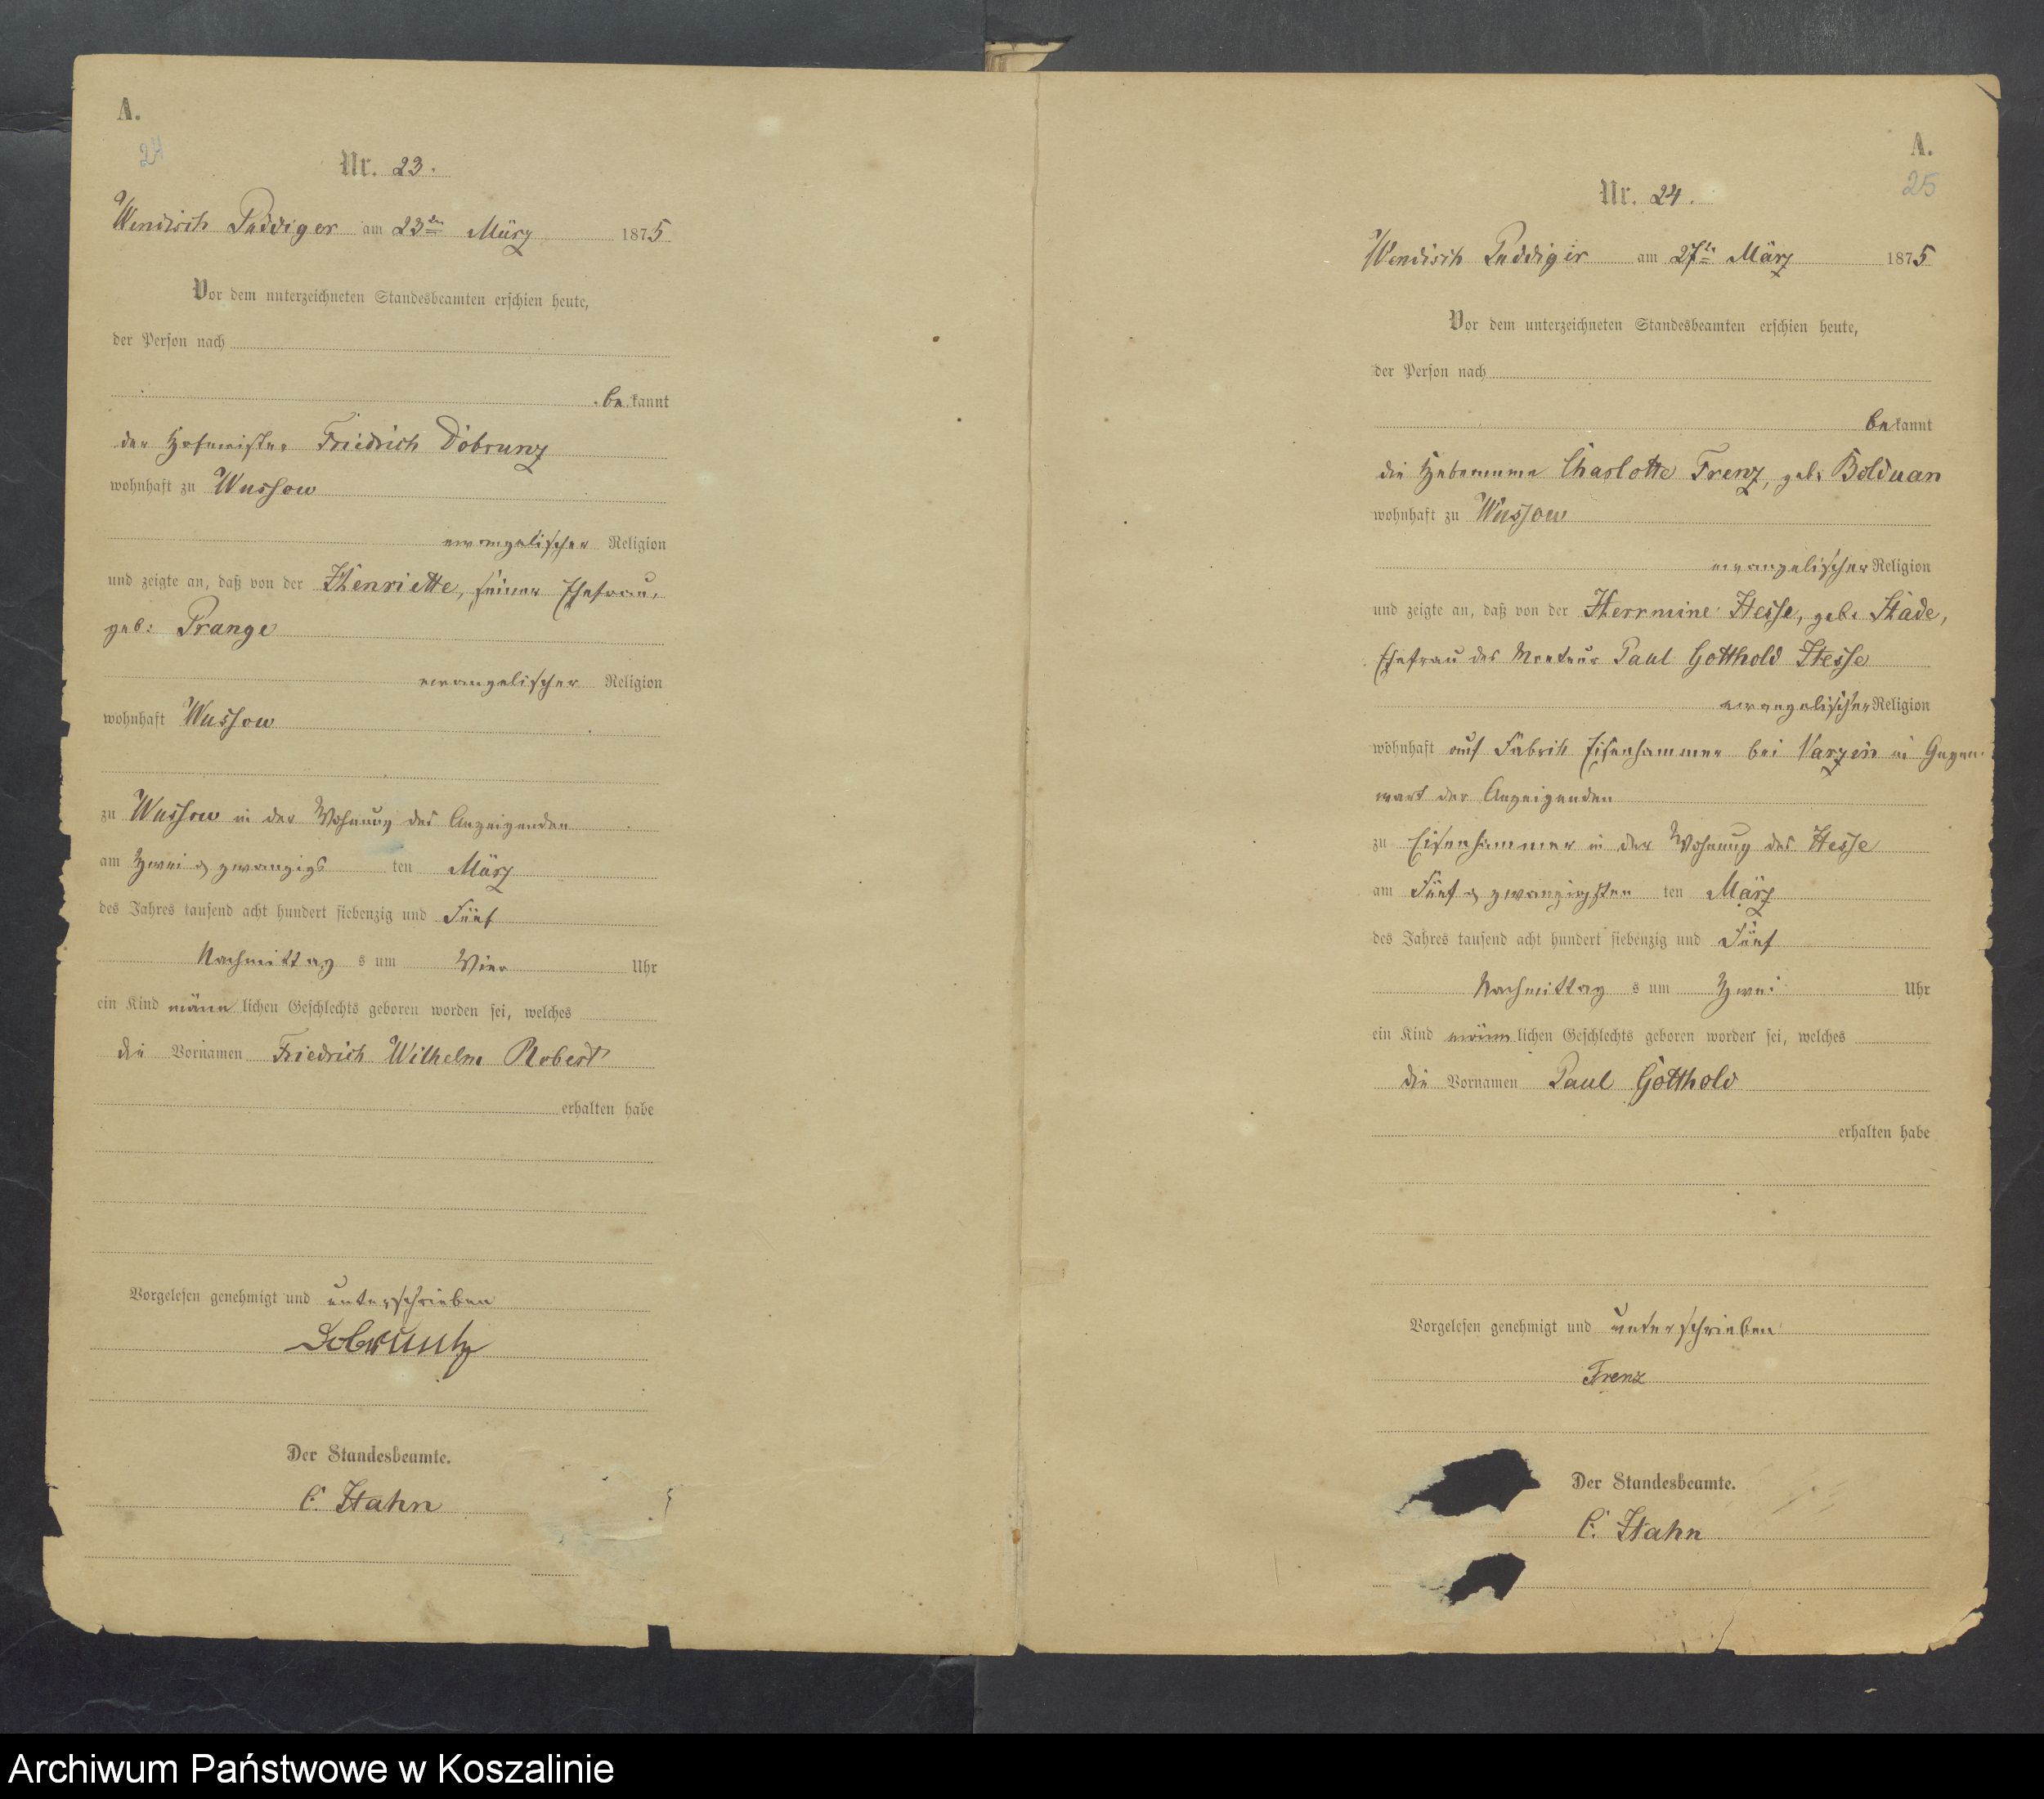 A.
24
Nr. 23.
Wendisch Puddiger am 23ten März 1875
Vor dem unterzeichneten Standesbeamten erschien heute,
der Person nach
bekannt
der Hofmeister Friedrich Dobrunz
wohnhaft zu Wussow
evangelischer Religion
und zeigte an, daß von der Henriette, seiner Ehefrau,
geb: Prange
evangelischer Religion
wohnhaft Wussow
zu Wussow in der Wohnung des Anzeigenden
am zwei & zwanzigs ten März
des Jahres tausend acht hundert siebenzig und Fünf
Nachmittag s um Vier Uhr
ein Kind männlichen Geschlechts geboren worden sei, welches
die Vornamen Friedrich Wilhelm Robert
erhalten habe
Vorgelesen genehmigt und unterschrieben
Dobruntz
Der Standesbeamte.
C. Hahn
A.
25
Nr. 24.
Wendisch Puddiger am 27te März 1875
Vor dem unterzeichneten Standesbeamten erschien heute,
der Person nach
bekannt
die Hebamme Charlotte Frenz, geb. Bolduan
wohnhaft zu Wussow
evangelischer Religion
und zeigte an, daß von der Herrmine Hesse, geb. Stade,
Ehefrau des Monteur Paul Gotthold Hesse
evangelischer Religion
wohnhaft auf Fabrik Eisenhammer bei Varzin in Gegen-
wart der Anzeigenden
zu Eisenhammer in der Wohnung des Hesse
am Fünf & zwanzigsten ten März
des Jahres tausend acht hundert siebenzig und Fünf
Nachmittag s um Zwei Uhr
ein Kind männlichen Geschlechts geboren worden sei, welches
die Vornamen Paul Gotthold
erhalten habe
Vorgelesen genehmigt und unterschrieben
Frenz
Der Standesbeamte.
C. Hahn
Archiwum Państwowe w Koszalinie